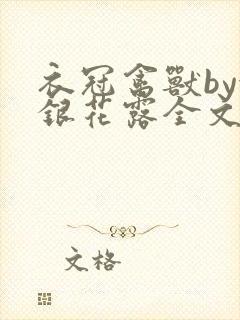 衣冠禽獸by
銀花露全文
文格